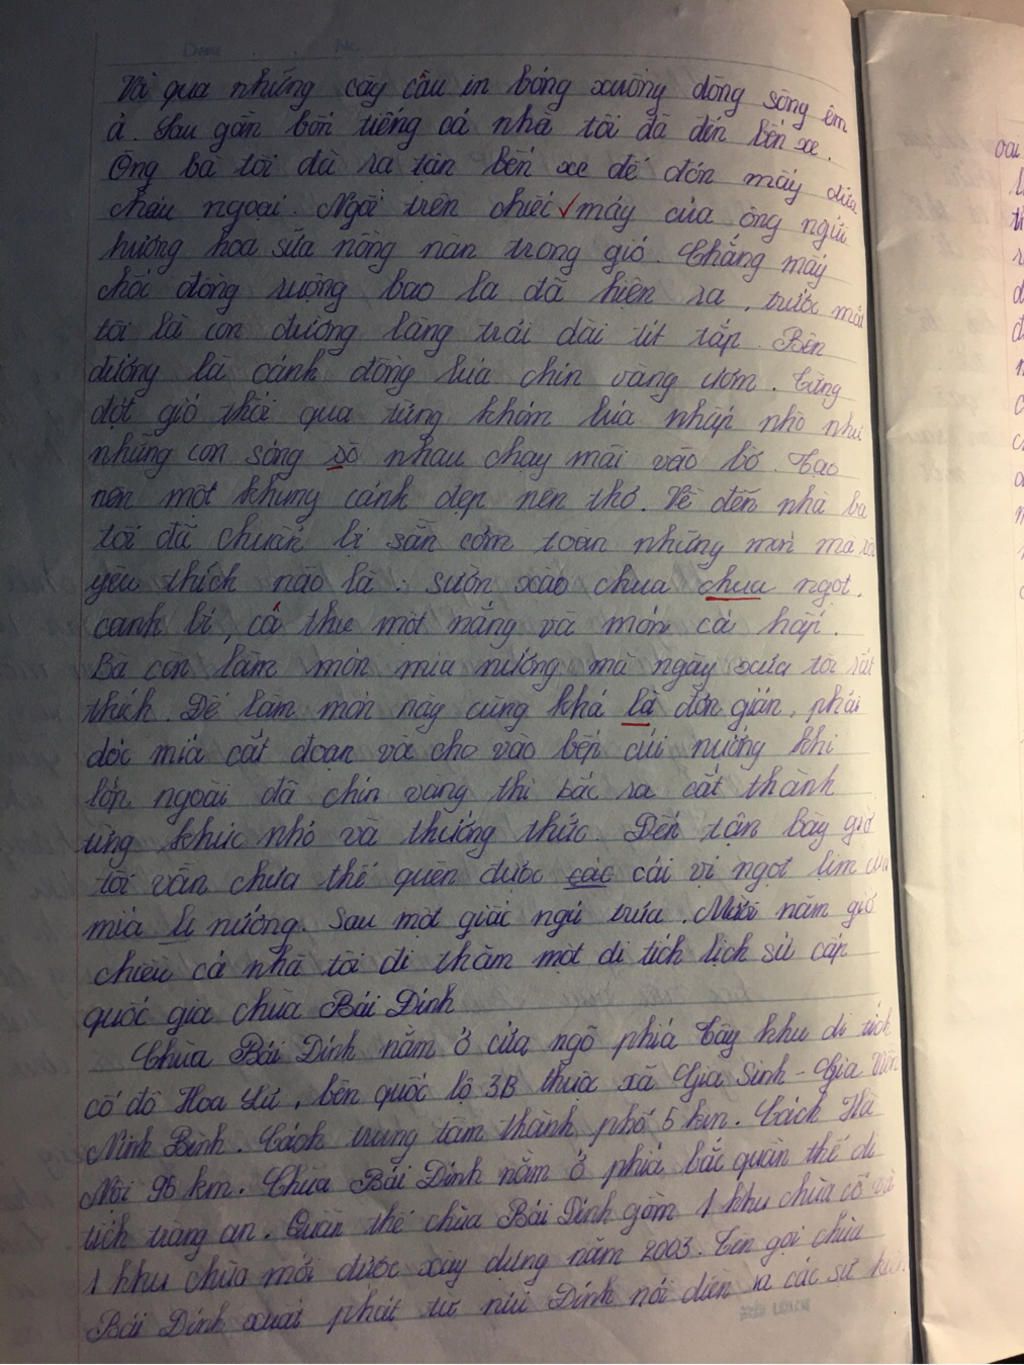 Và qua những cây cầu in bóng xuống dòng sông êm
ả. Sau gần bốn tiếng cả nhà tôi đã đến bến xe.
Ông bà tôi đã ra tận bến xe để đón mấy đứa
cháu ngoại. Ngồi trên chiếc máy của ông ngửi
hương hoa sữa nồng nàn trong gió. Chẳng mấy
chốc đồng ruộng bao la đã hiện ra, trước mắt
tôi là con đường làng trải dài tít tắp. Bên
đường là cánh đồng lúa chín vàng ươm. Từng
đợt gió thổi qua từng khóm lúa nhấp nhô như
những con sóng xô nhau chạy mãi vào bờ. Tạo
nên một khung cảnh đẹp nên thơ. Về đến nhà bà
tôi đã chuẩn bị sẵn cơm toàn những món mà tôi
yêu thích nào là: sườn xào chua chua ngọt,
canh bí, cá thu một nắng và món cá hấp.
Bà còn làm món mía nướng mà ngày xưa tôi rất
thích. Để làm món này cũng khá là đơn giản, phải
dóc mía cắt đoạn và cho vào bếp củi nướng khi
lớp ngoài đã chín vàng thì bắc ra cắt thành
từng khúc nhỏ và thưởng thức. Đến tận bây giờ
tôi vẫn chưa thể quên được các cái vị ngọt lịm của
mía lu nướng. Sau một giấc ngủ trưa. Mười năm giờ
chiều cả nhà tôi đi thăm một di tích lịch sử cấp
quốc gia chùa Bái Đính
Chùa Bái Đính nằm ở cửa ngõ phía Tây khu di tích
cố đô Hoa Lư, bên quốc lộ 3B thuộc xã Gia Sinh - Gia Viễn
Ninh Bình. Cách trung tâm thành phố 5 km. Cách Hà
Nội 95 km. Chùa Bái Đính nằm ở phía bắc quần thể di
tích tràng an. Quần thể chùa Bái Đính gồm 1 khu chùa cổ và
1 khu chùa mới được xây dựng năm 2003. Tên gọi chùa
Bái Đính xuất phát từ núi Đính nơi diễn ra các sự kiện